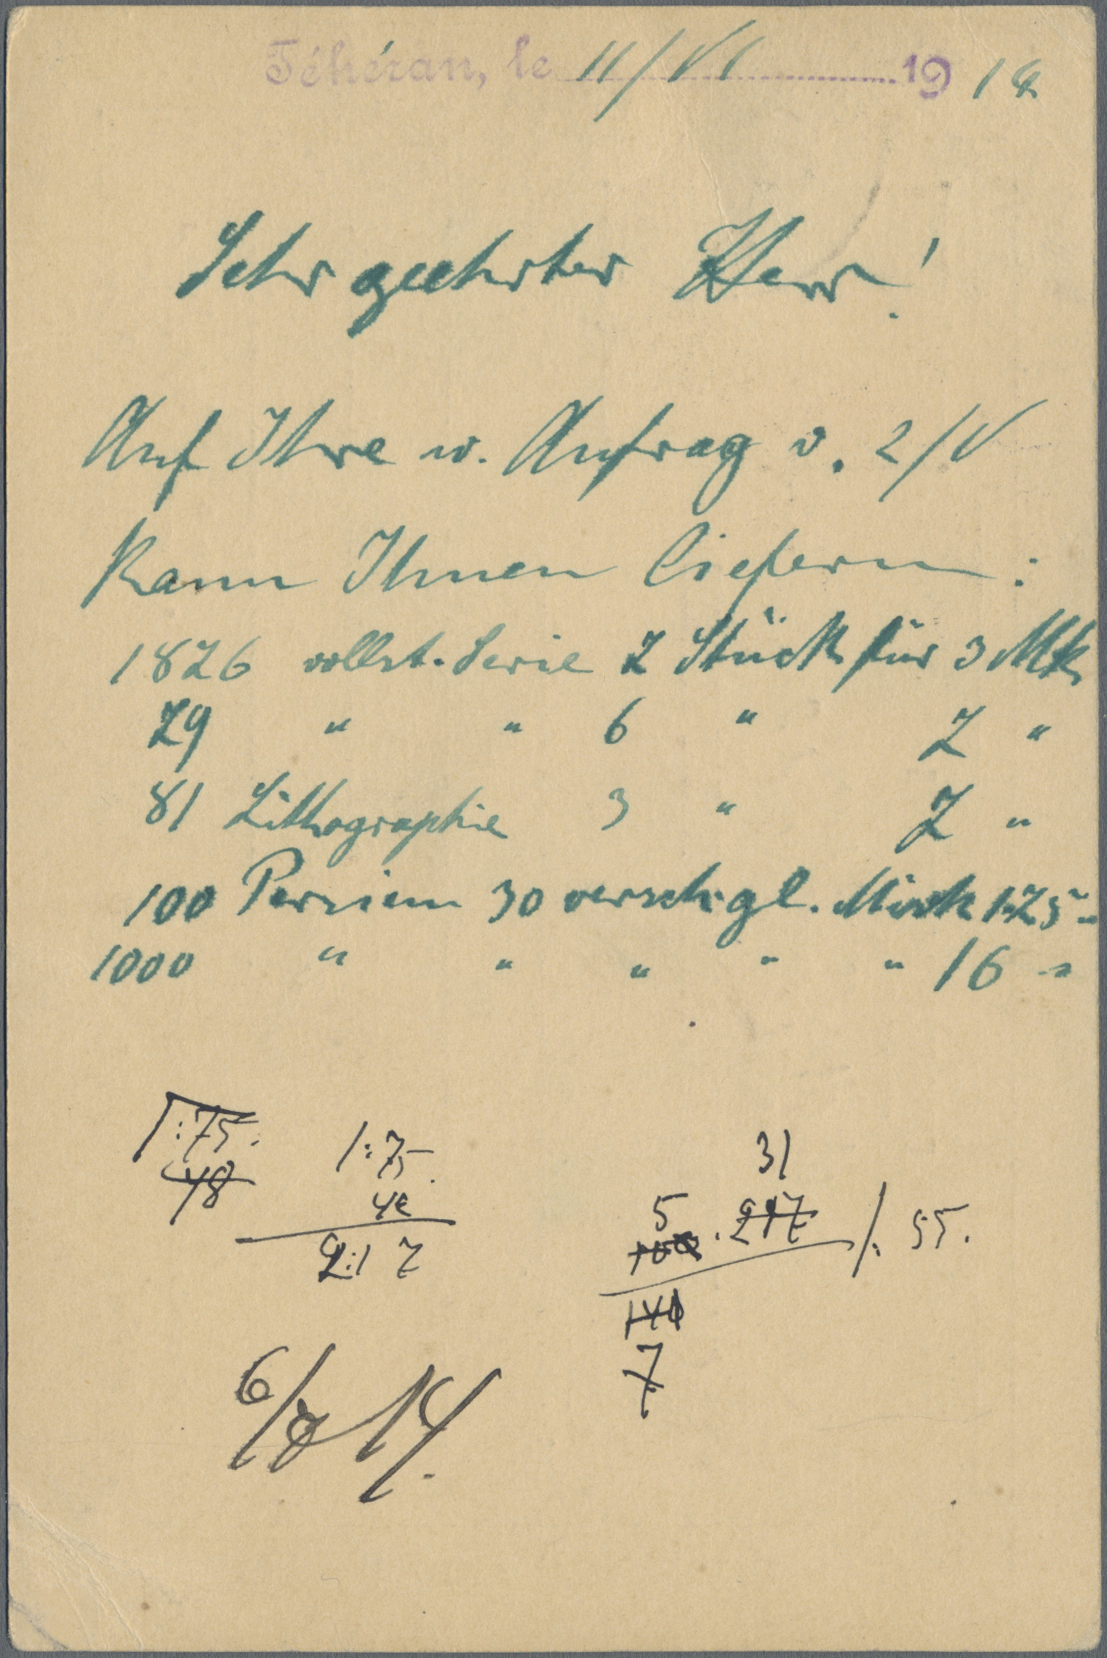 Téhéran, le 11/VI 1914
Sehr geehrter Herr!
Auf Ihre w. Anfrag v. 2/V
Kann Ihnen liefern:
1826 vollst. Serie 2 Stück für 3 Mk
29 " " 6 " 2 "
81 Lithographie 3 " 2 "
100 Persien 30 versch. gl. Misch 1.25 "
1000 " " " " " 16 "
1:75. 1:75
48
2:17
31
5 217 1:55.
100
140
7
6/7 14.